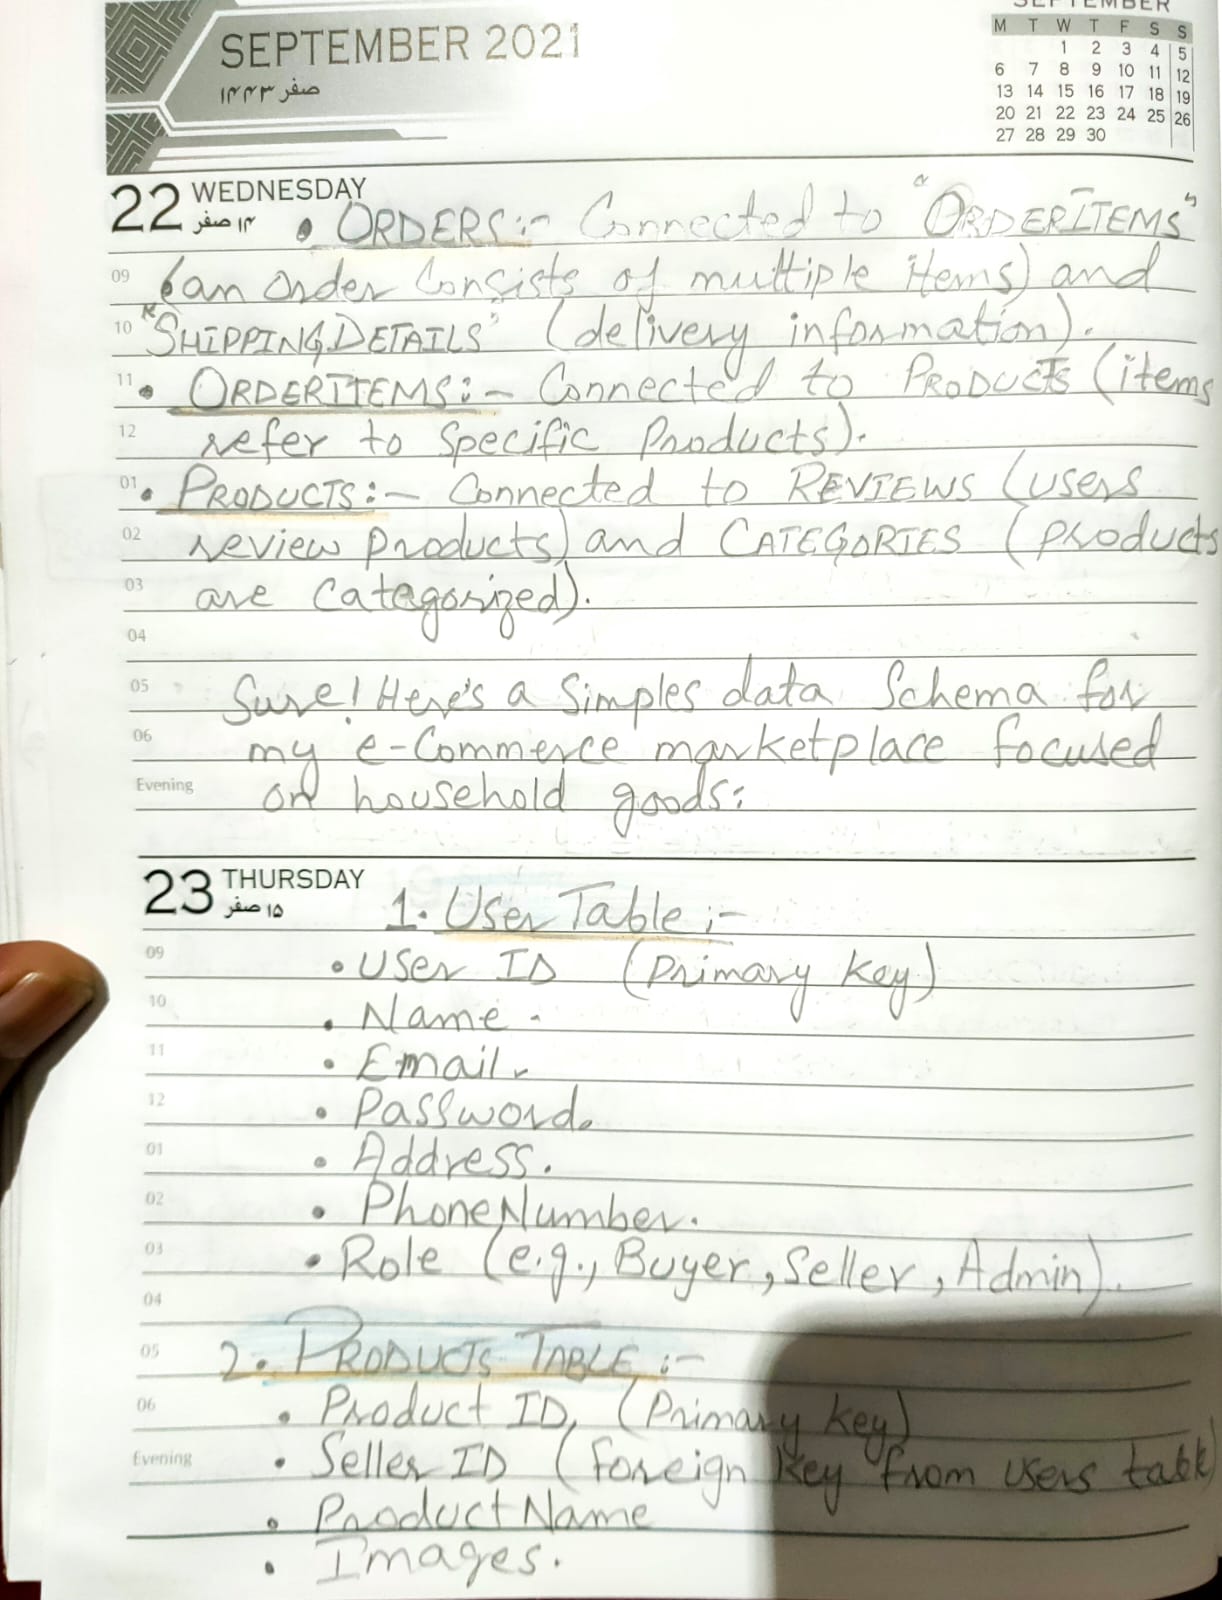 SEPTEMBER 2021
صفر ۱۴۴۳
SEPTEMBER
M T W T F S S
1 2 3 4 5
6 7 8 9 10 11 12
13 14 15 16 17 18 19
20 21 22 23 24 25 26
27 28 29 30
22 WEDNESDAY
۱۴ صفر
• ORDERS:- Connected to "ORDERITEMS"
09 (an order Consists of multiple items) and
10 "SHIPPINGDETAILS" (delivery information).
11 • ORDERITEMS:- Connected to PRODUCTS (items
12 refer to Specific Products).
01 • PRODUCTS:- Connected to REVIEWS (users
02 review products) and CATEGORIES (products
03 are Categorized).
04
05 Sure! Here's a Simples data Schema for
06 my e-Commerce marketplace focused
Evening on household goods:
23 THURSDAY
۱۵ صفر
1. User Table:-
09 • User ID (Primary Key)
10 • Name.
11 • Email.
12 • Password.
01 • Address.
02 • PhoneNumber.
03 • Role (e.g., Buyer, Seller, Admin).
04
05 2. PRODUCTS TABLE:-
06 • Product ID, (Primary Key)
Evening • Seller ID (foreign key from users table)
• ProductName
• Images.